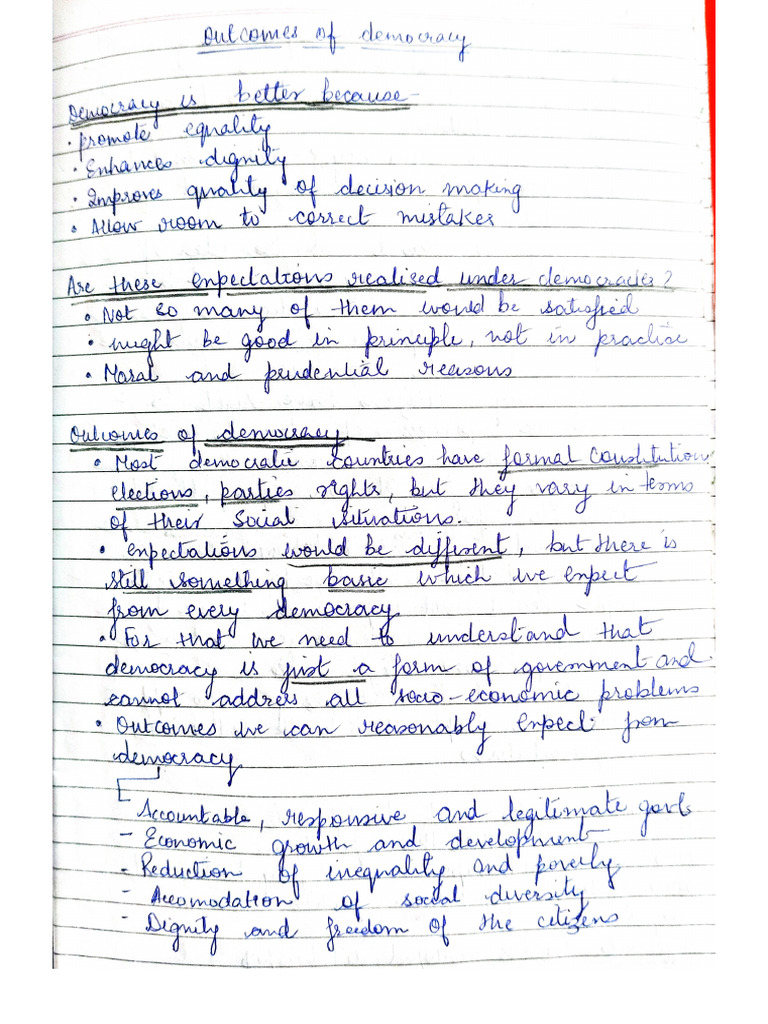 Outcomes of democracy
Democracy is better because
• promote equality
• Enhances dignity
• Improves quality of decision making
• Allow room to correct mistakes
Are these expectations realised under democracies?
• Not so many of them would be satisfied
• might be good in principle, not in practise
• Moral and prudential reasons
Outcomes of democracy
• Most democratic countries have formal constitution,
elections, parties rights, but they vary in terms
of their social situations.
• expectations would be different, but there is
still something basic which we expect
from every democracy
• For that we need to understand that
democracy is just a form of government and
cannot address all socio-economic problems
• Outcomes we can reasonably expect from
democracy
Accountable, responsive and legitimate govt
- Economic growth and development
- Reduction of inequality and poverty
- Accomodation of social diversity
- Dignity and freedom of the citizens